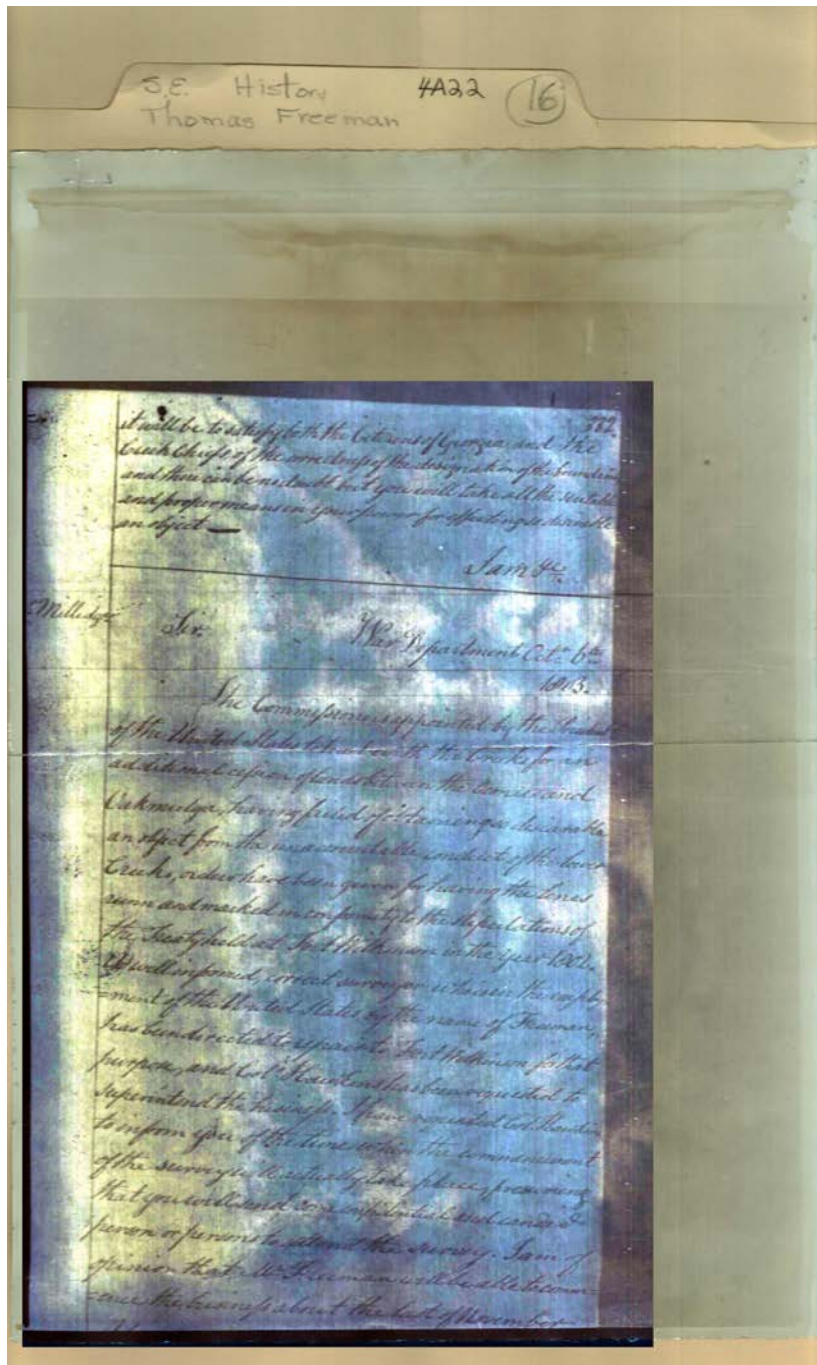 S.E. History 4A22 16
Thomas Freeman
it will be to satisfy both the Citizens of Georgia and the
Creek Chiefs of the correctness of the designation of the boundaries
and there can be no doubt but you will take all the suitable
and proper means in your power for effecting so desirable
an object —
I am &c.
Milledge
Sir. War Department Octr. 6th
1803.
The Commissioners appointed by the
of the United States to treat with the Creeks for an
additional cession of lands between the Oconee and
Oakmulgee, having failed of obtaining so desirable
an object from the unaccountable conduct of the lower
Creeks, orders have been given for having the lines
runn and marked in conformity to the stipulations of
the Treaty held at Fort Wilkinson in the year 1802.
A well informed, correct surveyor who is in the employ-
=ment of the United States by the name of Freeman,
has been directed to repair to Fort Wilkinson for that
purpose, and Col. Hawkins has been requested to
superintend the business. I have requested Col. Hawkins
to inform you of the time when the commencement
of the survey will actually take place, presuming
that you will send some confidential and candid
person or persons to attend the survey. I am of
opinion that Mr. Freeman will be able to com-
=ence the business about the last of November